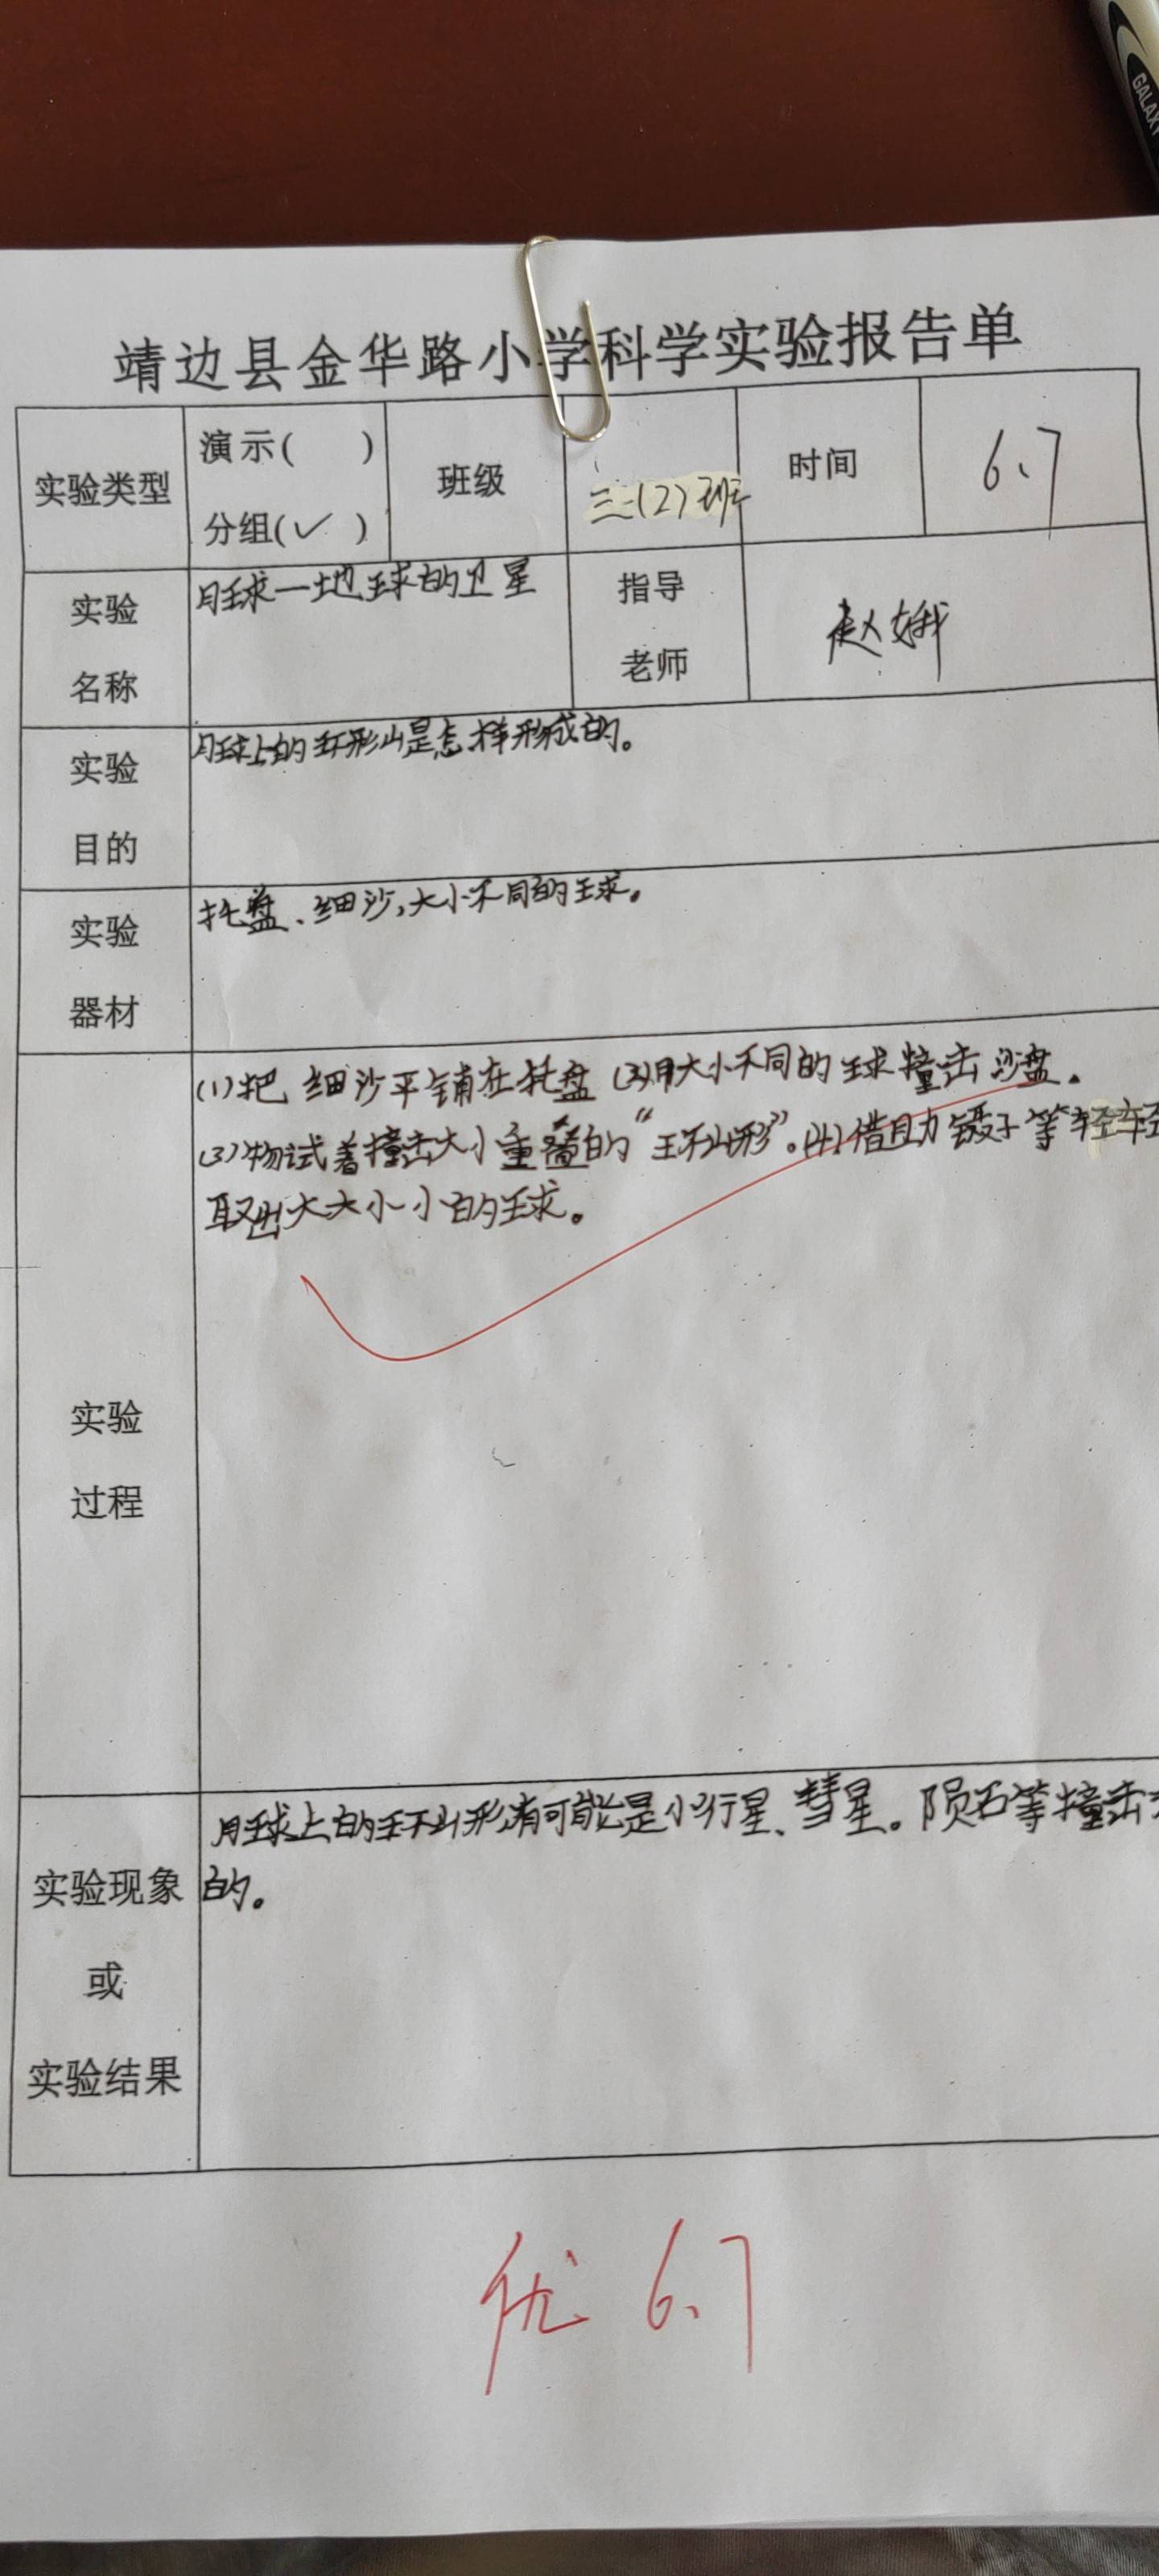 GALAXY
靖边县金华路小学科学实验报告单
实验类型
演示( )
分组(✓)
班级
三(2)班
时间
6.7
实验
名称
月球一地球的卫星
指导
老师
赵娥
实验
目的
月球上的环形山是怎样形成的。
实验
器材
托盘、细沙,大小不同的球。
实验
过程
(1)把 细沙平铺在托盘 (2)用大小不同的球撞击沙盘。
(3)物试着撞击大小重叠的“环山形”。(4)借助镊子等轻轻
取出大大小小的球。
实验现象
或
实验结果
月球上的环山形有可能是小行星、彗星。陨石等撞击
的。
优 6.7